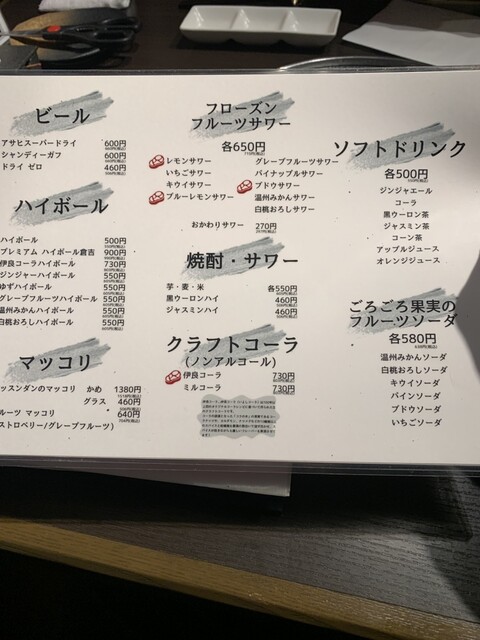 ビール
アサヒスーパードライ 600円
シャンディーガフ 600円
ドライ ゼロ 460円
ハイボール
ハイボール 500円
プレミアム ハイボール倉吉 900円
伊良コーラハイボール 730円
ジンジャーハイボール 550円
ゆずハイボール 550円
グレープフルーツハイボール 550円
温州みかんハイボール 550円
白桃おろしハイボール 550円
マッコリ
ッスンダンのマッコリ かめ 1380円
グラス 460円
ルーツ マッコリ 640円
ストロベリー/グレープフルーツ)
フローズン
フルーツサワー
各650円
レモンサワー
いちごサワー
キウイサワー
ブルーレモンサワー
グレープフルーツサワー
パイナップルサワー
ブドウサワー
温州みかんサワー
白桃おろしサワー
おかわりサワー 270円
焼酎・サワー
芋・麦・米 各550円
黒ウーロンハイ 460円
ジャスミンハイ 460円
クラフトコーラ
(ノンアルコール)
伊良コーラ 730円
ミルコーラ 730円
ソフトドリンク
各500円
ジンジャエール
コーラ
黒ウーロン茶
ジャスミン茶
コーン茶
アップルジュース
オレンジジュース
ごろごろ果実の
フルーツソーダ
各580円
温州みかんソーダ
白桃おろしソーダ
キウイソーダ
パインソーダ
ブドウソーダ
いちごソーダ